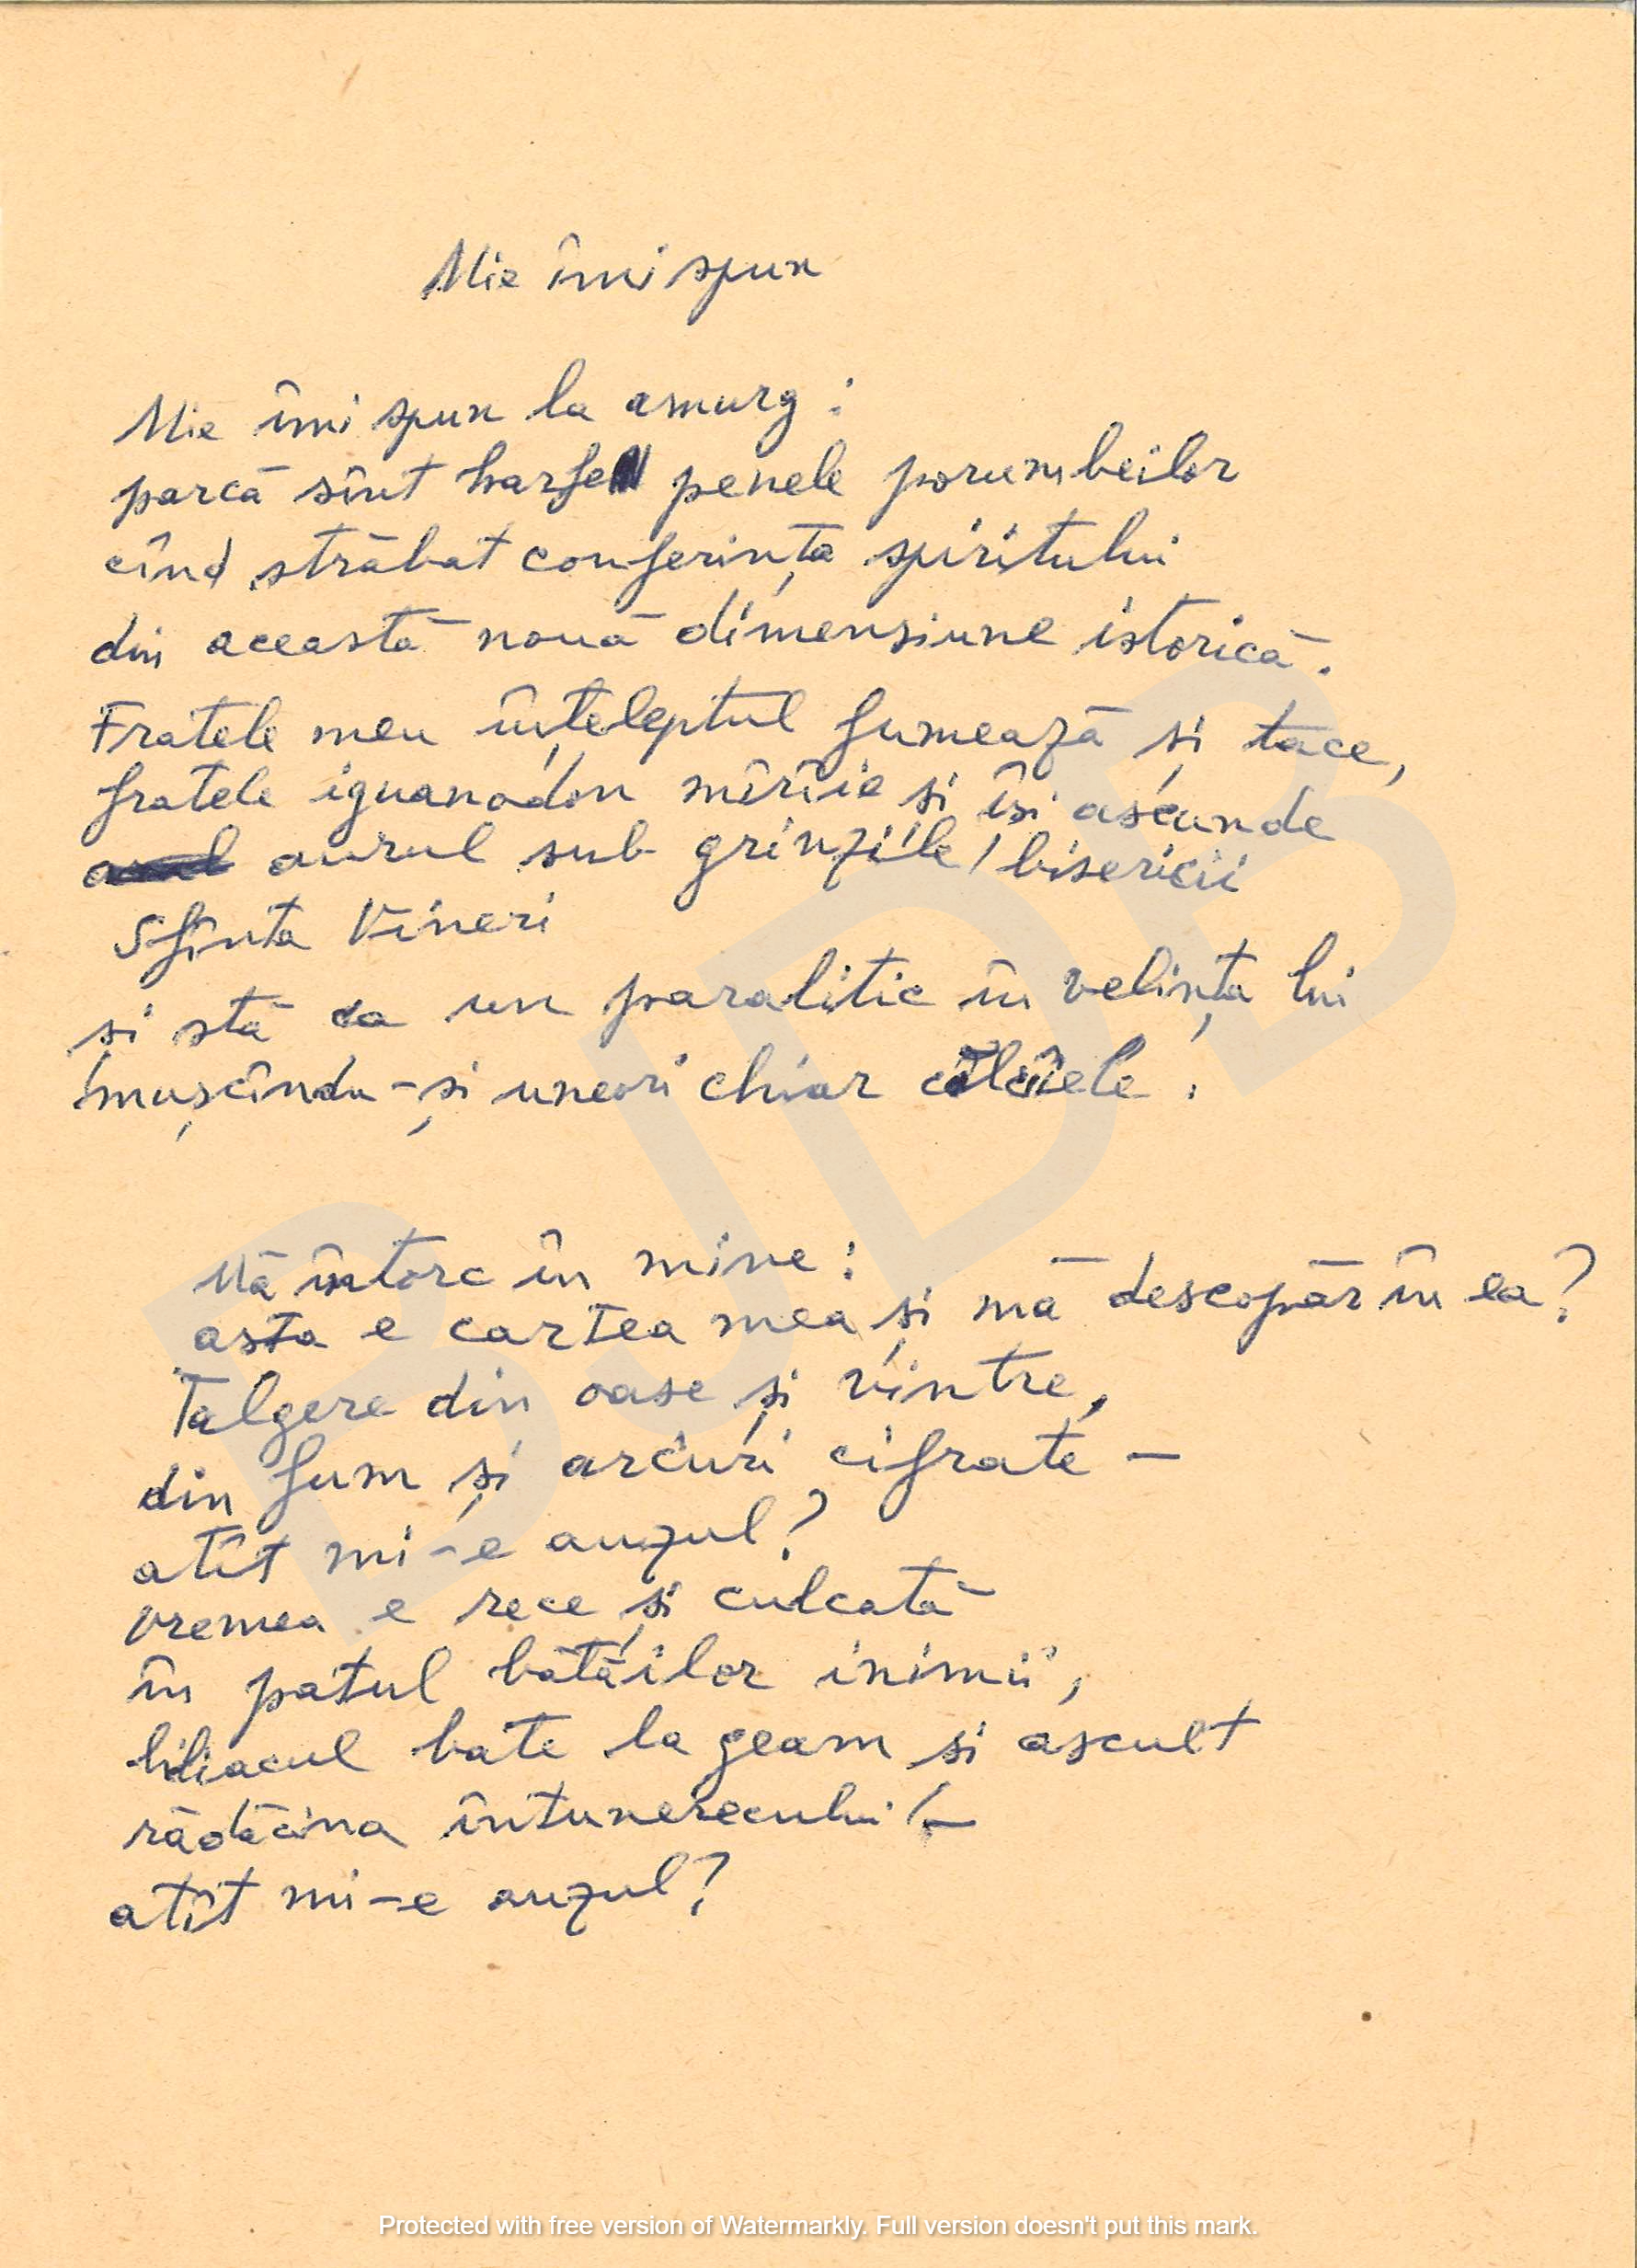 Mie îmi spun
Mie îmi spun la amurg :
parcă sînt harfe penele porumbeilor
cînd străbat conferința spiritului
din această nouă dimensiune istorică.
Fratele meu înțeleptul fumează și tace,
fratele iguanodon mîrîie și își ascunde
aurul sub grinzile bisericii
Sfînta Vineri
și stă ca un paralitic în velința lui
mușcîndu-și uneori chiar călcîiele.
Mă întorc în mine :
asta e cartea mea și mă descopăr în ea?
Talgere din oase și vintre,
din fum și arcuri cifrate —
atît mi-e auzul?
vremea e rece și culcată
în patul bătăilor inimii,
liliacul bate la geam și ascult
rădăcina întunerecului —
atît mi-e auzul?
BJDB
Protected with free version of Watermarkly. Full version doesn't put this mark.